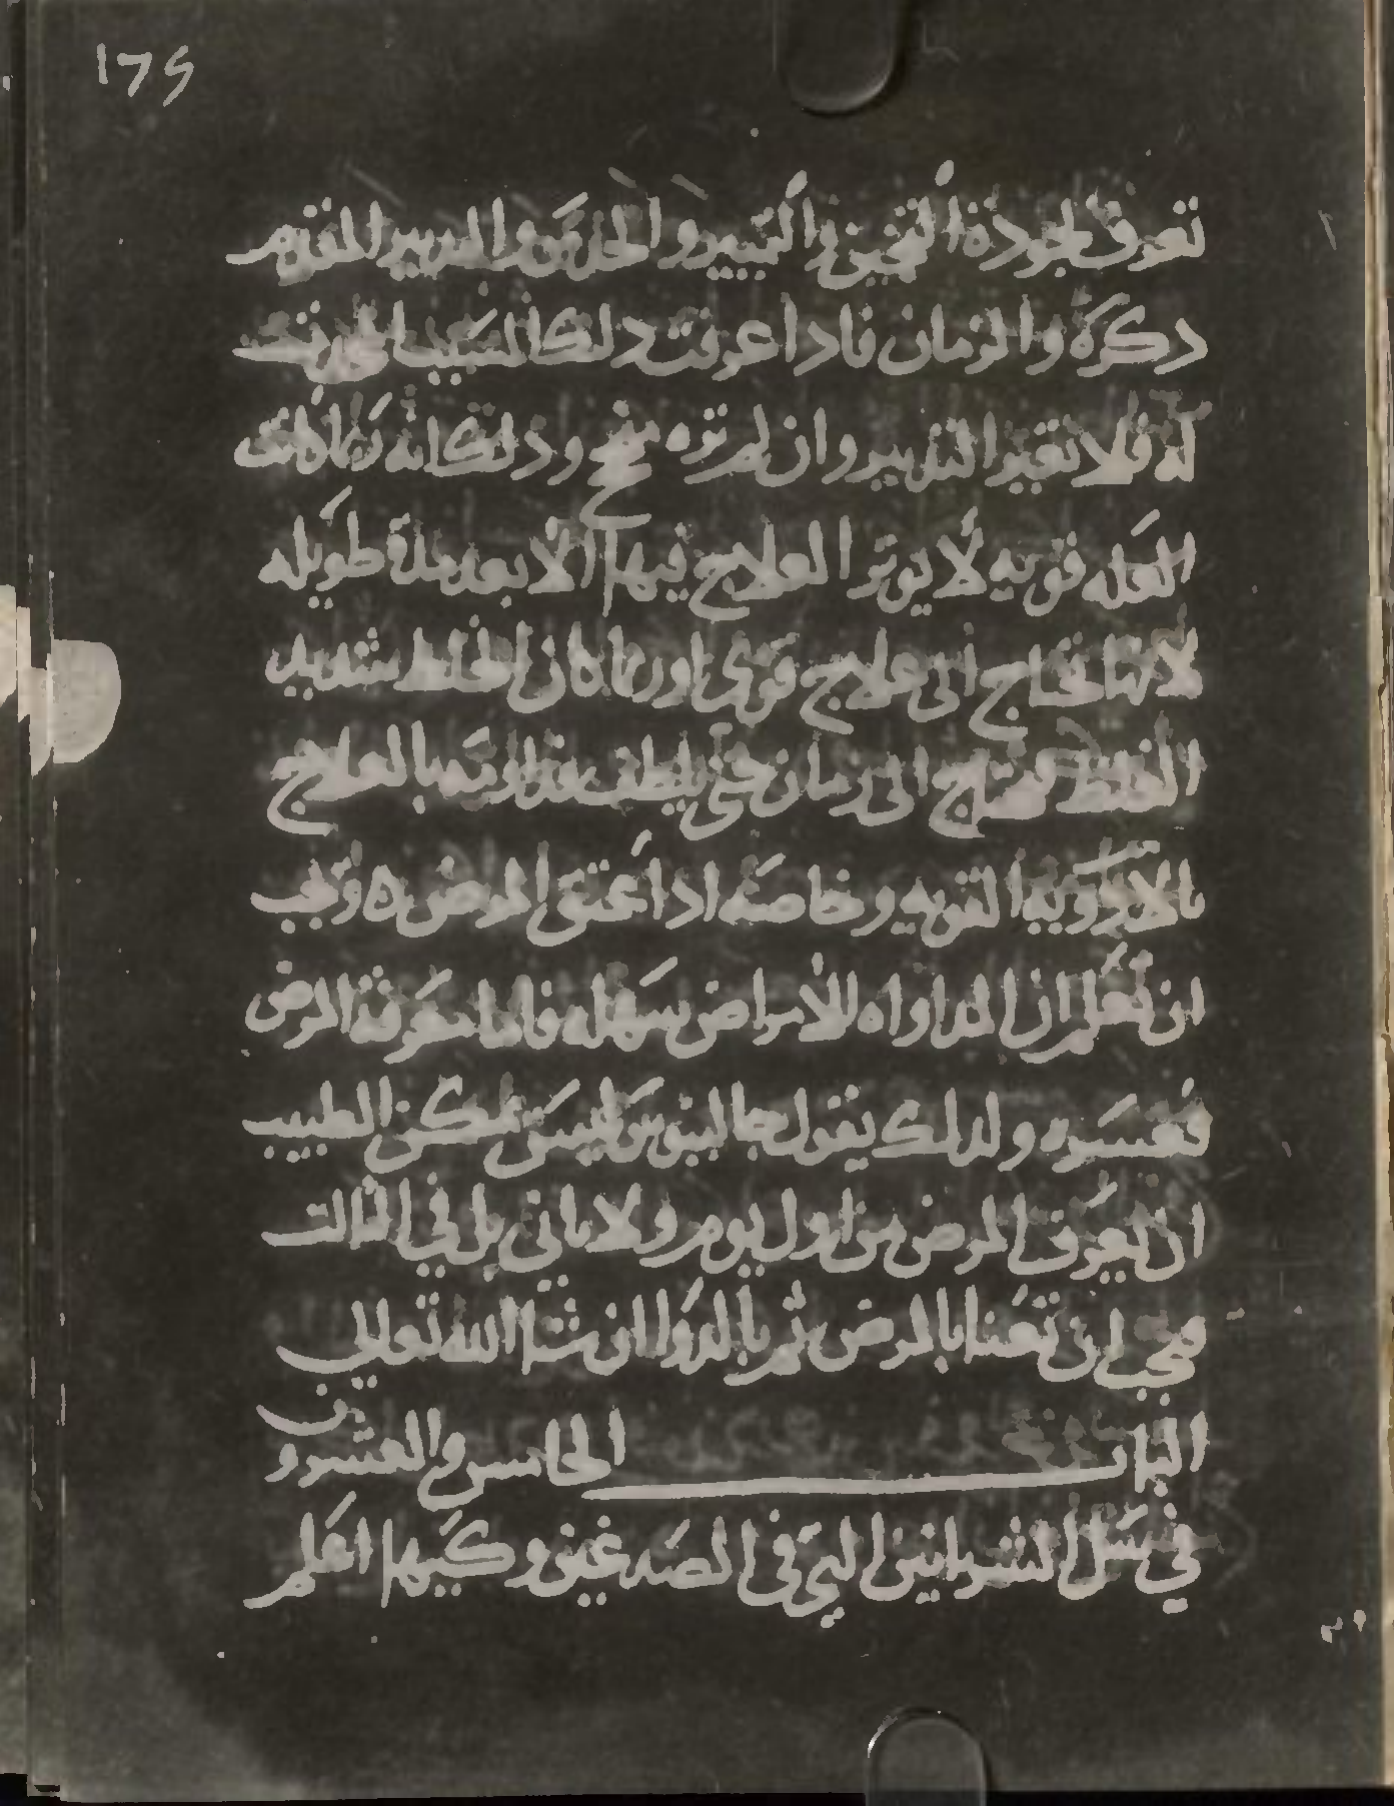 ١٦٤
تعرف بجودة التخمين والتمييز والحدس والتدبير المتقدم
دكره والزمان فادا عرفت دلك السبب
له فلا تغير التدبير وان لم تره ينجح وذلك انه ربما كانت
العله قويه لا يوثر العلاج فيها الا بعد مدة طويله
لانها تحتاج الى علاج قوي او ربما كان الخلط شديد
الغلظ محتاج الى زمان حتى يلطف بالعلاج
بالادوية القويه وخاصه ادا عتق المرض ه ويجب
ان تعلم ان المداواه للامراض سهله فاما معرفة المرض
فعسره ولدلك يقول جالينوس ليس يمكن الطبيب
ان يعرف المرض من اول يوم ولا ثاني بل في الثالث
فيجب ان تعنا بالمرض ثم بالدوا ان شا الله تعالي
الباب الخامس والعشرون
في سل الشرايين التي في الصدغين وكيها اعلم